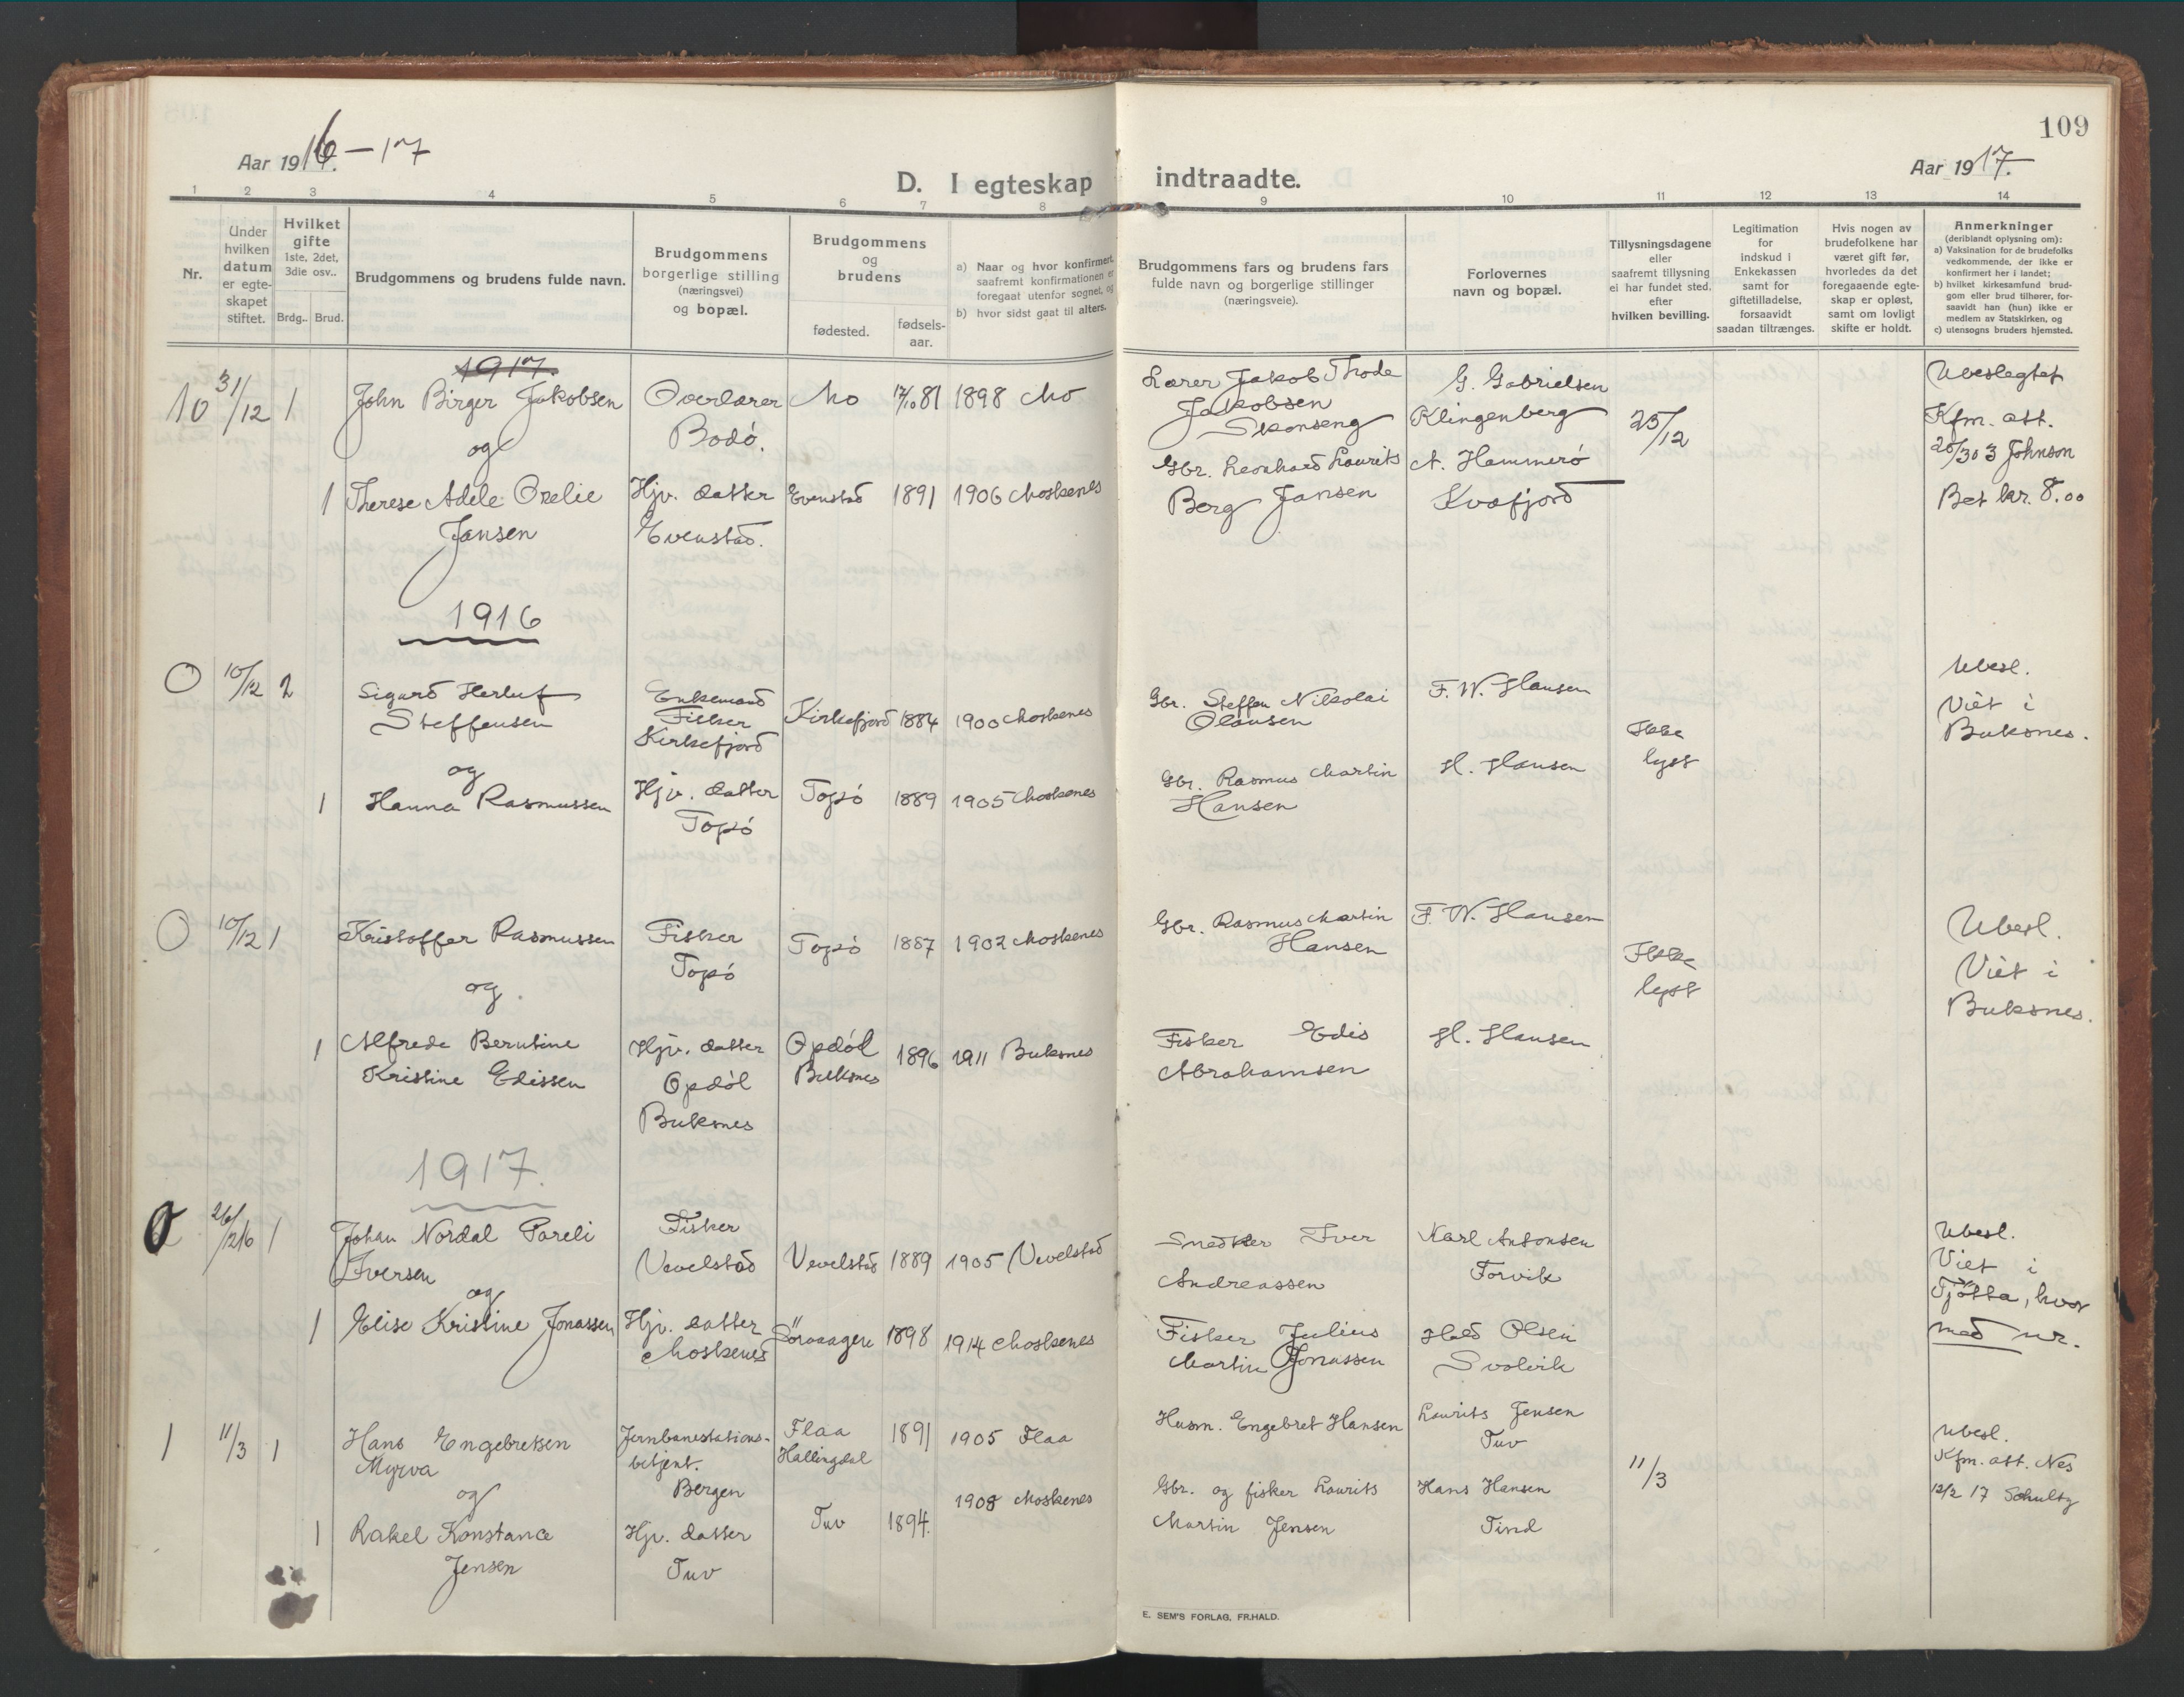 109
Aar 1916-17
Aar 1917.
D. I egteskap indtraadte.
1 2 3 4 5 6 7 8 9 10 11 12 13 14
Nr.
Under hvilken datum er egte-skapet stiftet.
Hvilket gifte
1ste, 2det, 3die osv..
Brdg.. Brud.
Brudgommens og brudens fulde navn.
Brudgommens
borgerlige stilling
(næringsvei)
og bopæl.
Brudgommens
og
brudens
fødested.
fødsels-
aar.
a) Naar og hvor konfirmert,
saafremt konfirmationen er
foregaat utenfor sognet, og
b) hvor sidst gaat til alters.
Brudgommens fars og brudens fars
fulde navn og borgerlige stillinger
(næringsveie).
Forlovernes
navn og bopæl.
Tillysningsdagene
eller
saafremt tillysning
ei har fundet sted,
efter
hvilken bevilling.
Legitimation
for
indskud i
Enkekassen
samt for
giftetilladelse,
forsaavidt
saadan tiltrænges.
Hvis nogen av
brudefolkene har
været gift før,
hvorledes da det
foregaaende egte-
skap er opløst,
samt om lovligt
skifte er holdt.
Anmerkninger
(deriblandt oplysning om):
a) Vaksination for de brudefolks
vedkommende, der ikke er
konfirmert her i landet;
b) hvilket kirkesamfund brud-
gom eller brud tilhører, for-
saavidt han (hun) ikke er
medlem av Statskirken, og
c) utensogns bruders hjemsted.
1917.
10 31/12 1 John Birger Jakobsen Overlærer Mo 17/10 81 1898 Mo
Bodø.
og
1 Therese Adele Orelie Hjv. datter Evenstad 1891 1906 Moskenes
Jansen Evenstad.
Lærer Jakob Thode
Jakobsen
Skonseng
G. Gabrielsen
Klingenberg
Gbr. Leonhard Laurits
Berg Jansen
A. Hammerø
Kvæfjord
25/12
Ubeslegtet
Kfm. att.
20/3 03 Johnson
Bet kr. 8.00
1916
O 10/12 2 Sigurd Herluf Enkemand Kirkefjord 1884 1900 Moskenes
Steffensen Fisker
Kirkefjord
og
1 Hanna Rasmussen Hjv. datter Topø 1889 1905 Moskenes
Topø
Gbr. Steffen Nikolai F. W. Hansen
Olausen
Gbr. Rasmus Martin H. Hansen
Hansen
Ikke
lyst
Ubesl.
Viet i
Buksnes.
O 10/12 1 Kristoffer Rasmussen Fisker Topø 1887 1902 Moskenes
Topø
og
1 Alfrede Berntine Hjv. datter Opdøl 1896 1911 Buksnes
Kristine Edissen Opdøl Buksnes
Buksnes
Gbr. Rasmus Martin F. W. Hansen
Hansen
Fisker Edis H. Hansen
Abrahamsen
Ikke
lyst
Ubesl.
Viet i
Buksnes.
1917.
O 26/12 16 1 Johan Nordal Pareli Fisker Vevelstad 1889 1905 Vevelstad
Iversen Vevelstad
og
1 Elise Kristine Jonassen Hjv. datter Sørvaagen 1898 1914 Moskenes
Moskenes
Snedker Iver Karl Antonsen
Andreassen Forvik
Fisker Julius Hald Olsen
Martin Jonassen Svolvik
Ubesl.
Viet i
Tjøtta, hvor
med nr.
1 11/3 1 Hans Engebretsen Jernbanestations- Flaa 1891 1905 Flaa
Myrva betjent. Hallingdal
og Bergen
1908 Moskenes
1 Rakel Konstance Hjv. datter Tuv 1894.
Jensen Tuv
Husm. Engebret Hansen Laurits Jensen
Tuv
Gbr. og fisker Laurits Hans Hansen
Martin Jensen Tind
11/3
Ubesl.
Kfm. att. Nes
12/2 17 Schultz
E. SEM'S FORLAG, FR.HALD.